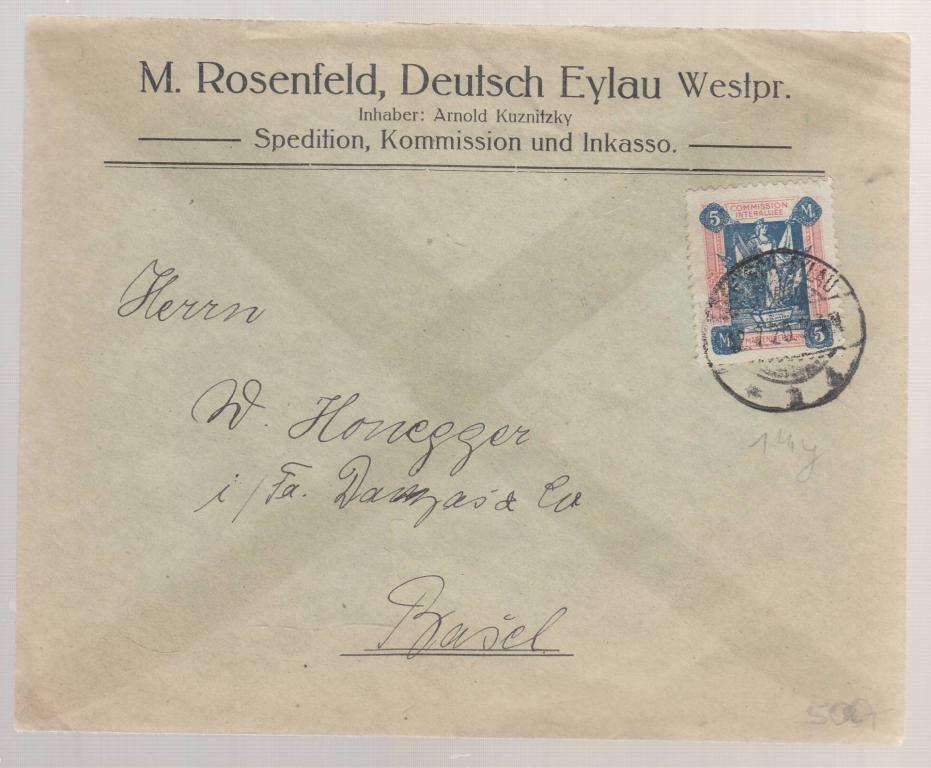 M. Rosenfeld, Deutsch Eylau Westpr.
Inhaber: Arnold Kuznitzky
Spedition, Kommission und Inkasso.
5 COMMISSION M.
INTERALLIÉE
M. 5
EYLAU
Herrn
W. Honegger
i/Fa. Danzas & Co
Basel
14y
500,-